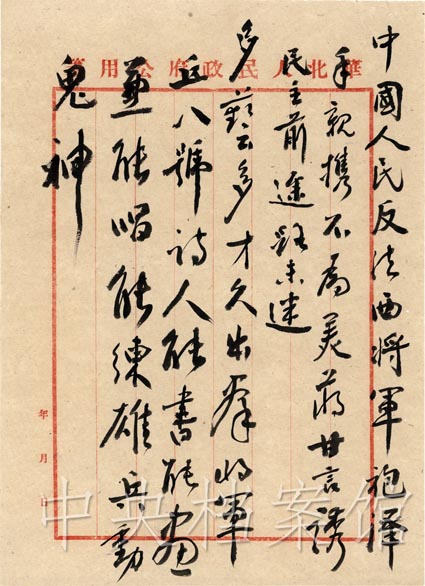 華北人民政府公用箋
中國人民反法西將軍袍澤
手親携不為美蔣甘言誘
民主前途路未迷
多藝多才久出群將軍
丘八號詩人能書能畫
兼能唱能練雄兵動
鬼神
年 月 日
中央档案馆